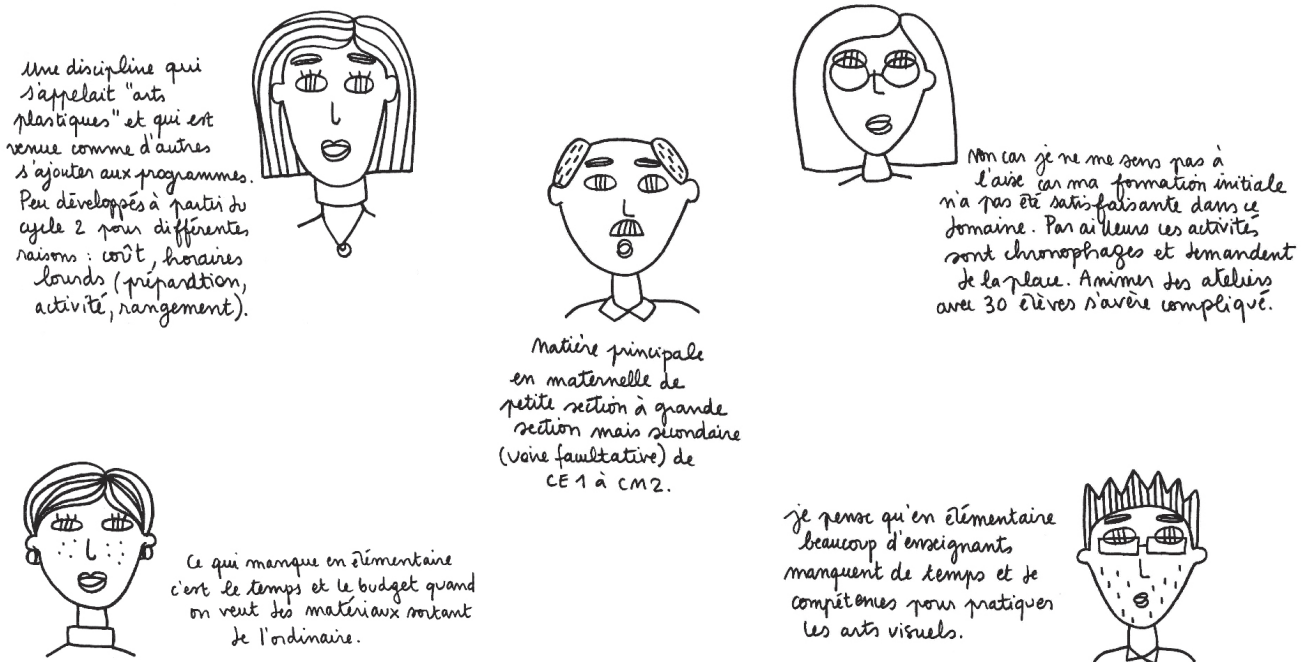 Une discipline qui
s'appelait "arts
plastiques" et qui est
venue comme d'autres
s'ajouter aux programmes.
Peu développés à partir du
cycle 2 pour différentes
raisons : coût, horaires
lourds (préparation,
activité, rangement).
Matière principale
en maternelle de
petite section à grande
section mais secondaire
(voire facultative) de
CE1 à CM2.
Non car je ne me sens pas à
l'aise car ma formation initiale
n'a pas été satisfaisante dans ce
domaine. Par ailleurs ces activités
sont chronophages et demandent
de la place. Animer des ateliers
avec 30 élèves s'avère compliqué.
Ce qui manque en élémentaire
c'est le temps et le budget quand
on veut des matériaux sortant
de l'ordinaire.
je pense qu'en élémentaire
beaucoup d'enseignants
manquent de temps et de
compétences pour pratiquer
les arts visuels.